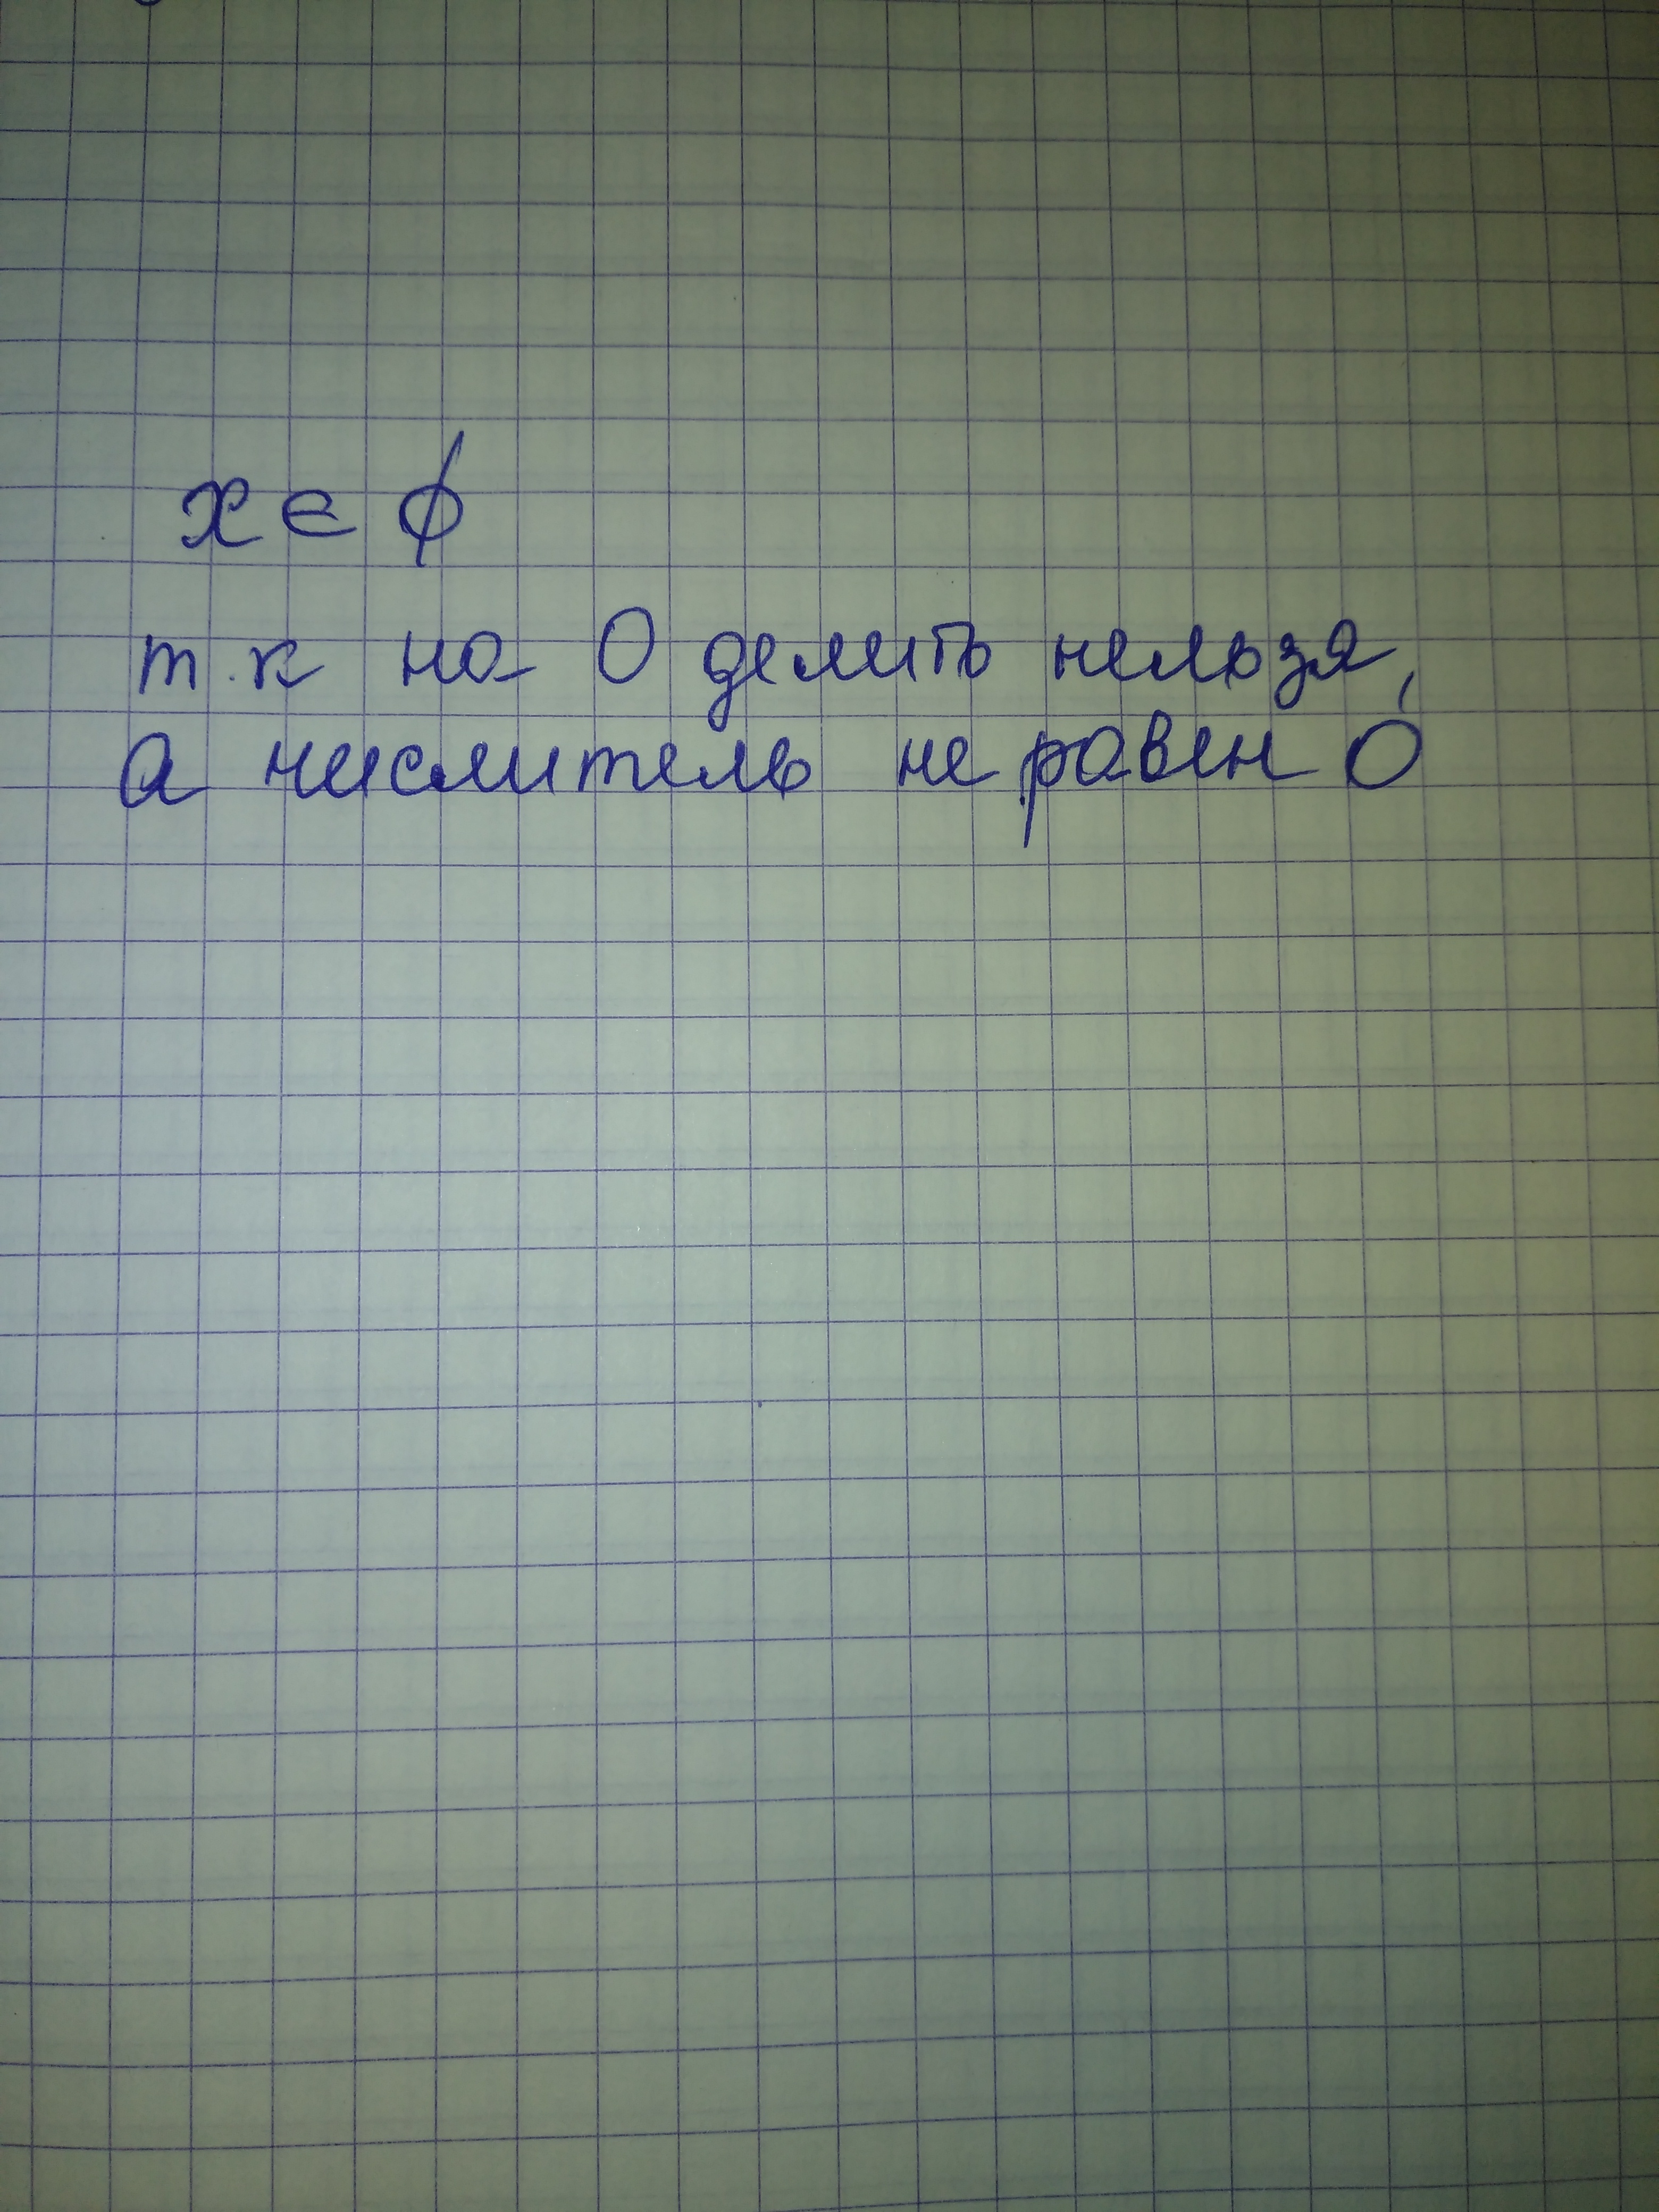 x ∈ ∅
т.к на 0 делить нельзя,
а числитель не равен 0